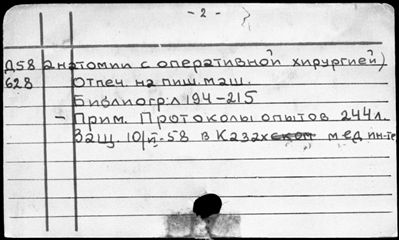 - 2 -
Д58 анатомии с оперативной хирургией)
628 Отпеч. на пиш. маш.
Библиогр л 194-215
- Прим. Протоколы опытов 244 л.
Защ. 10/II-58 в Казахском мед ин-те